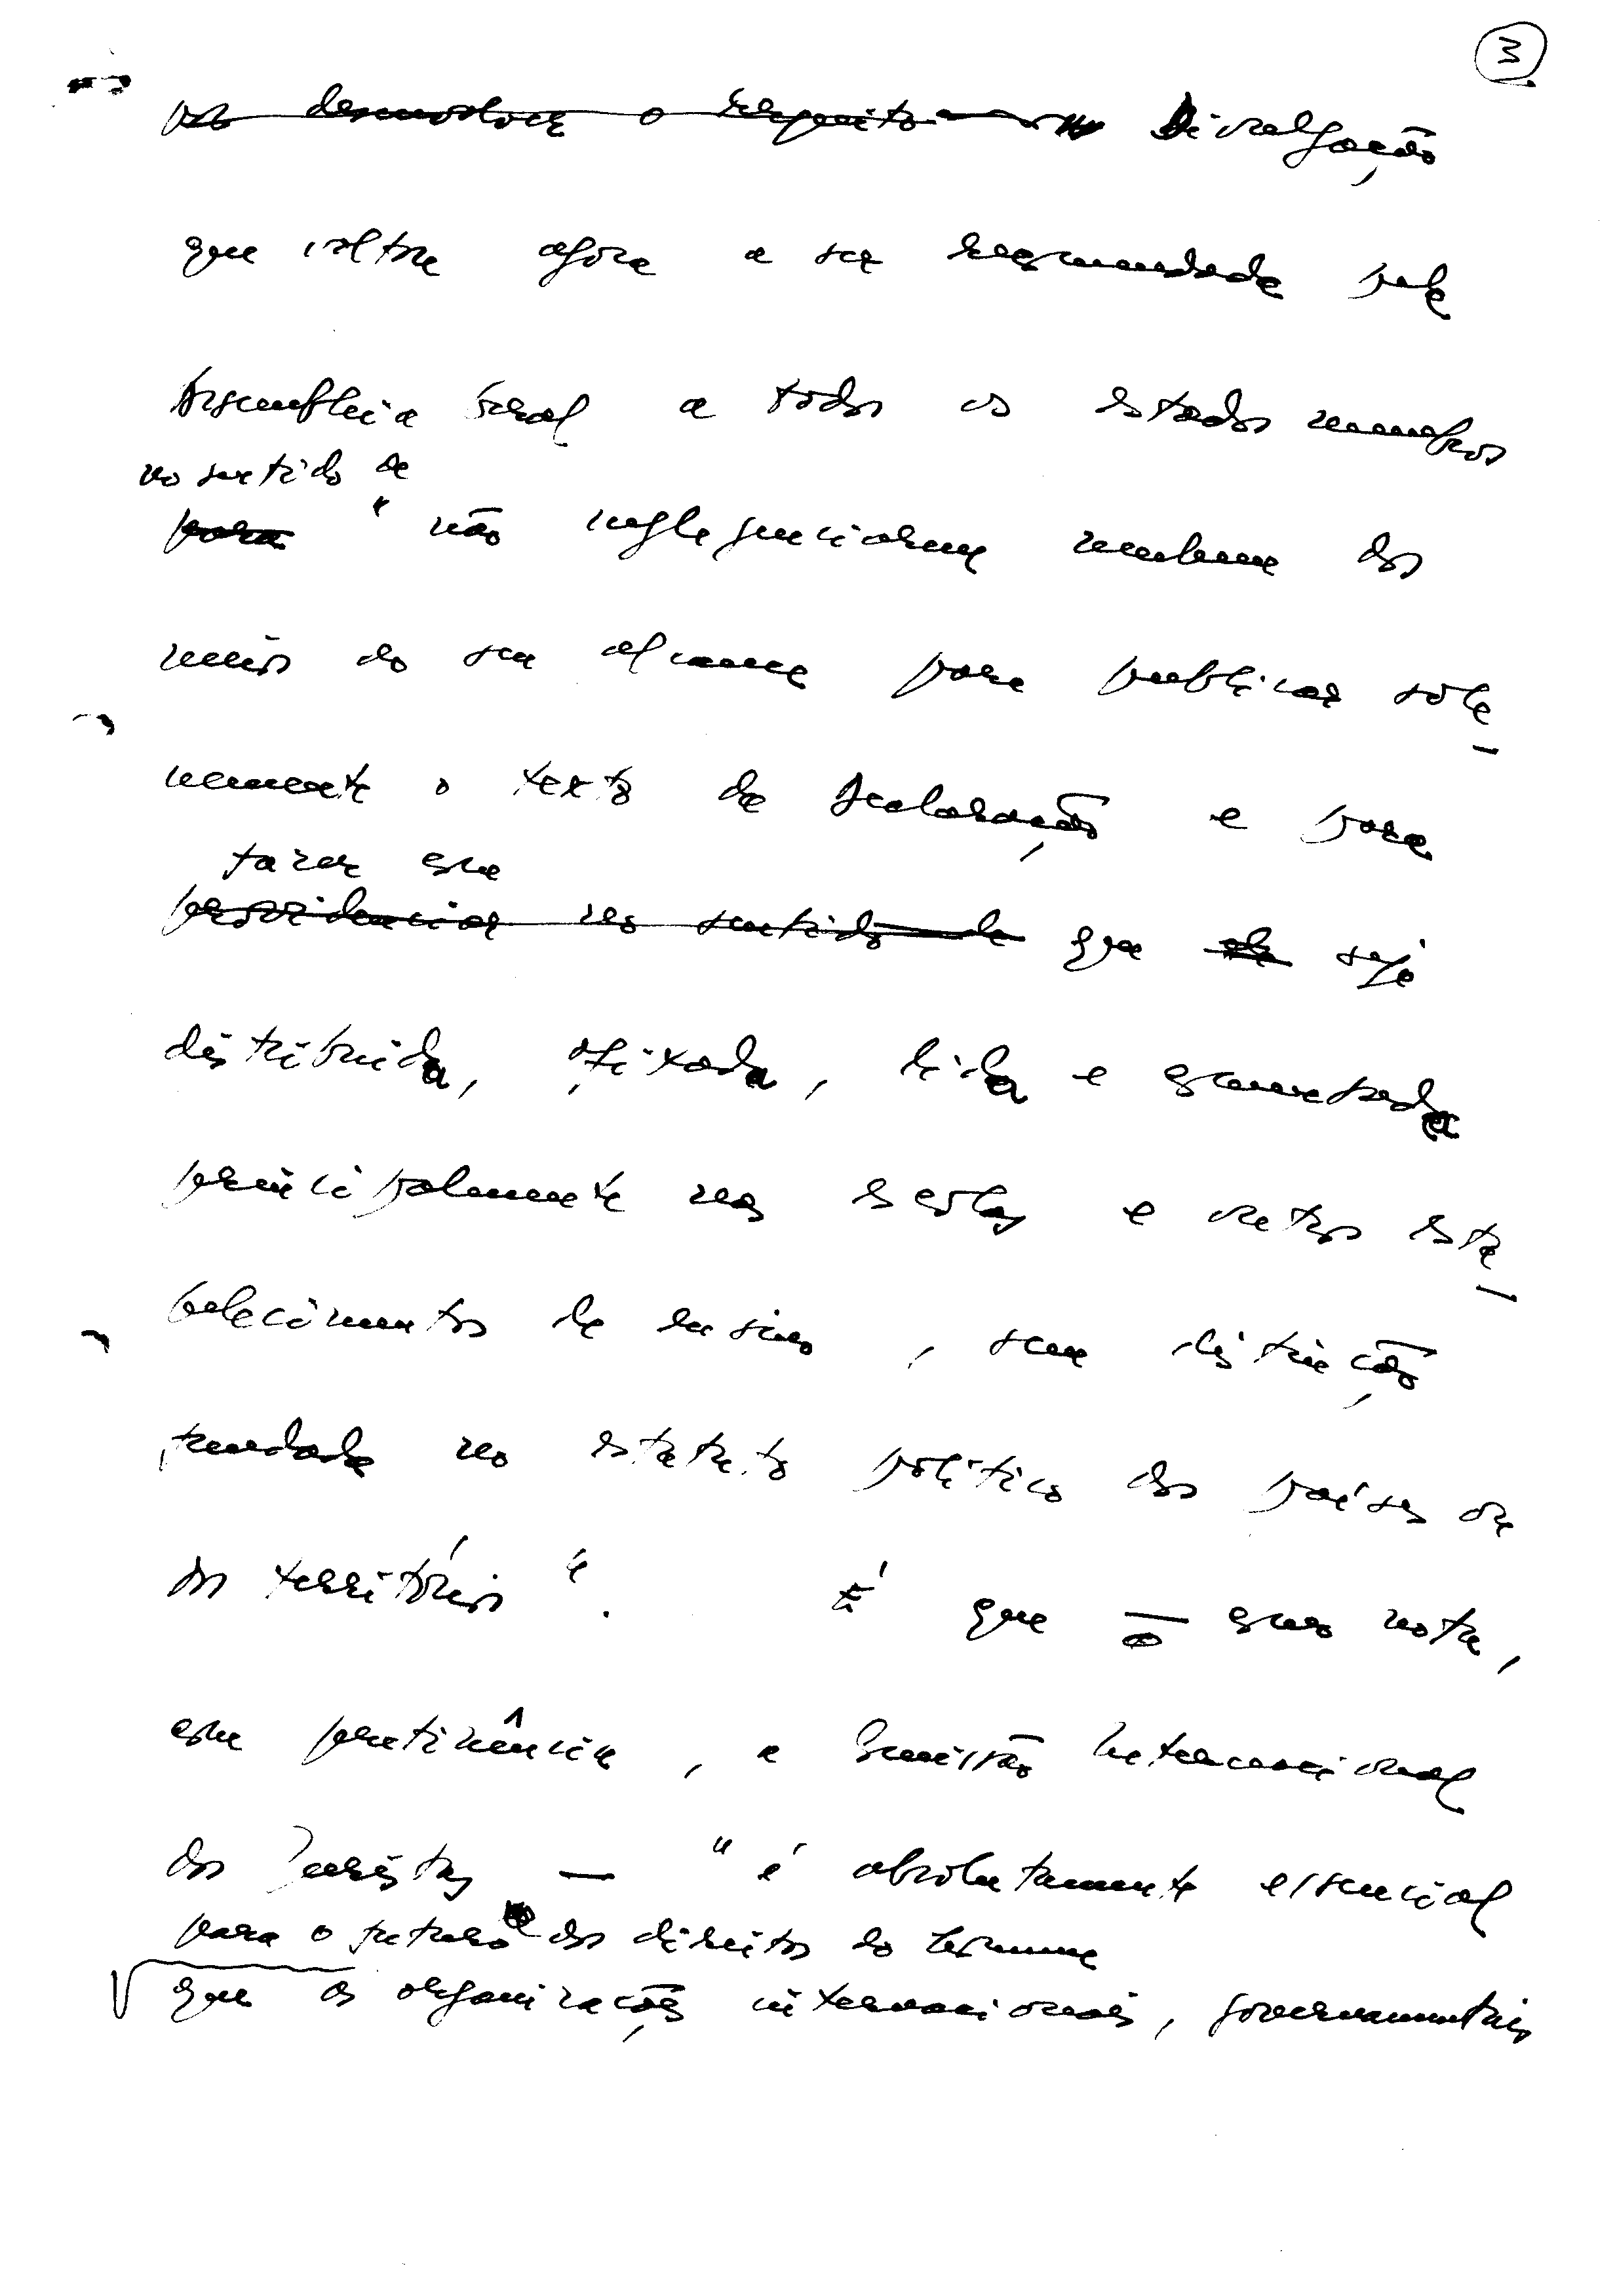 3
para desenvolver o respeito Divulgação
que volta agora a ser recomendada pela
Assembleia Geral a todos os estados membros
no sentido de
para "não negligenciarem nenhum dos
meios do seu alcance para publicar sole-
nemente o texto da Declaração e para
fazer com
providenciar no sentido de que ela seja
distribuída, afixada, lida e comentada
principalmente nas escolas e outros esta-
belecimentos de ensino, sem distinção
fundada no estatuto político dos países ou
dos territórios". É que — como nota,
com pertinência, a Comissão Internacional
dos Juristas — "é absolutamente essencial
para o futuro dos direitos do homem
que as organizações internacionais, governamentais